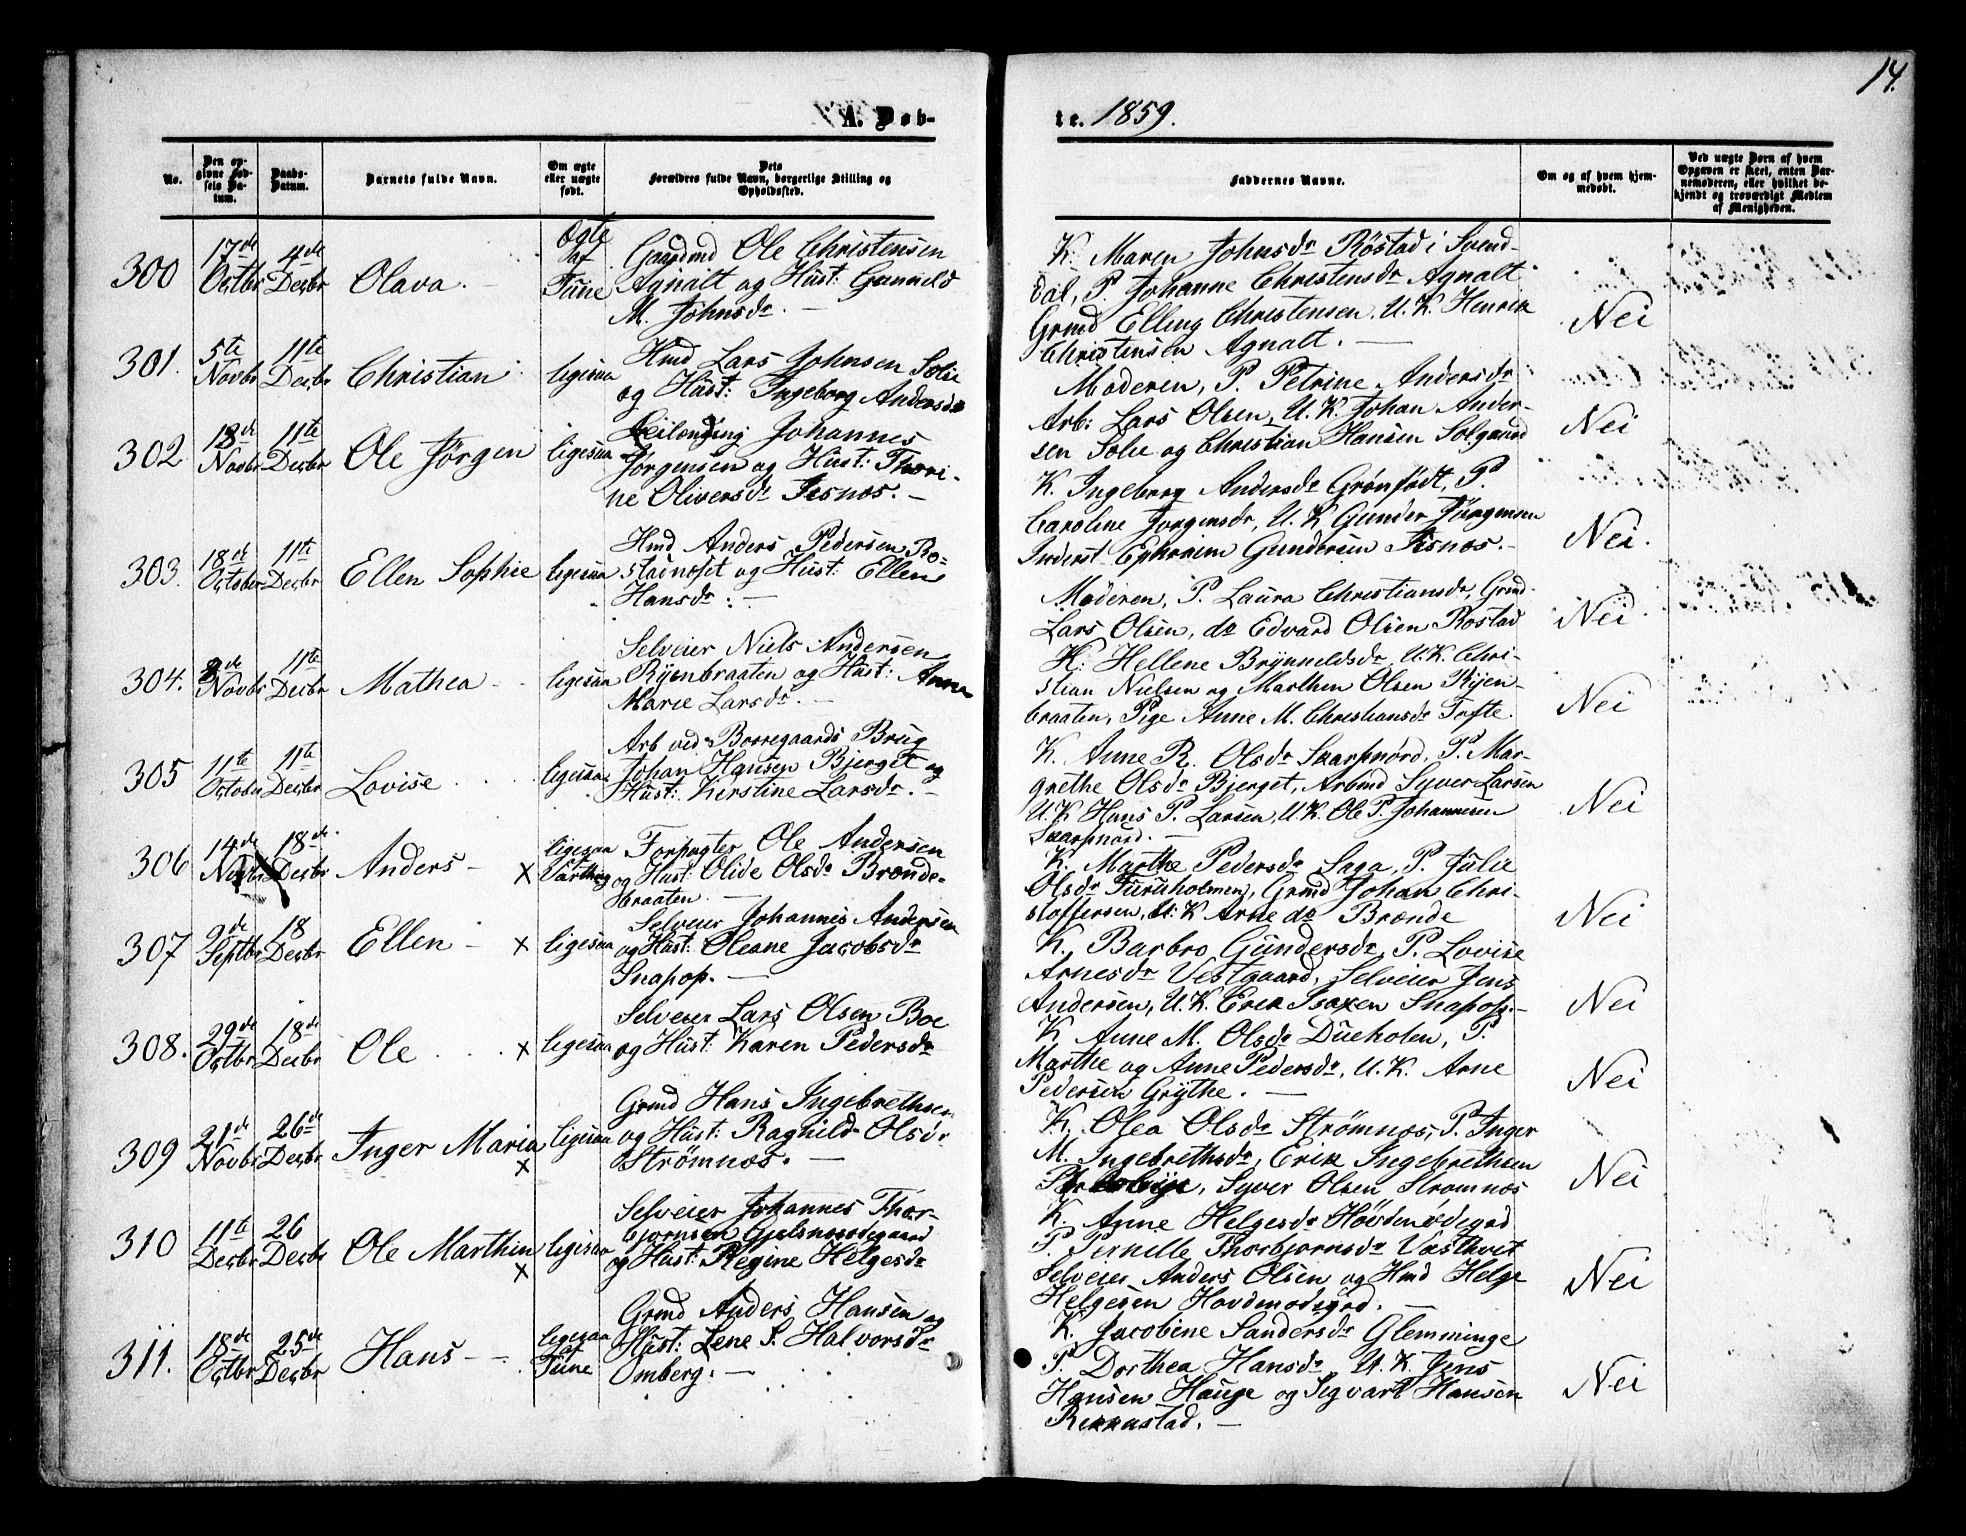 14.
A. Døb-
te. 1859.
No.
Den opgivne Fødsels Datum.
Daabs-Datum.
Barnets fulde Navn.
Om ægte eller uægte født.
Dets Forældres fulde Navn, borgerlige Stilling og Opholdssted.
Faddernes Navne.
Om og af hvem hjemmedøbt.
Ved uægte Børn af hvem Opgaven er skeet, enten Barnemoderen, eller hvilket bekjendt og troværdigt Medlem af Menigheden.
300
17de Octbr
4de Decbr
Olava.
Ægte af Tune
Gaardmd Ole Christensen
Agnalt og Hust: Gunnild
M. Johnsdr. —
K. Maren Johnsdr Röstad i Svend-
dal, P. Johanne Christensdr Agnalt
Grmd Elling Christensen, U.K. Henrik
Christensen Agnalt. —
Nei
301.
5te Novbr
11te Decbr
Christian
ligesaa
Hmd Lars Johnsen Solie
og Hust: Ingeborg Andersdr
Moderen, P. Petrine Andersdr
Arb: Lars Olsen, U.K. Johan Ander-
sen Solie og Christian Hansen Solgaard
Nei
302
18de Novbr
11te Decbr
Ole Jörgen
ligesaa
Leilending Johannes
Jörgensen og Hust: Thori-
ne Oliversdr Isnæs. —
K. Ingeborg Andersdr Grönfödt, P.
Caroline Jorgensdr, U.K. Gunder Jörgensen
Inderst Ephraim Gundersen Isnæs. —
Nei.
303.
18de October
11te Decbr
Ellen Sophie
ligesaa
Hmd Anders Pedersen Ro-
stadnoset og Hust: Ellen
Hansdr: —
Moderen, P. Laura Christiansdr, Grmd
Lars Olsen, do Edvard Olsen Rostad
Nei.
304.
8de Novbr
11te Decbr
Mathea —
ligesaa
Selveier Niels Andersen
Ryenbraaten og Hust: Anne
Marie Larsdr. —
K. Hellene Brynneldsdr, U.K. Chri-
stian Nielsen og Marthin Olsen Ryen-
braaten, Pige Anne M. Christiansdr Tofte.
Nei
305
11te October
11te Decbr
Lovise
ligesaa
Arb ved Borregaards Brug
Johan Hansen Bjerget og
Hust: Kirstine Larsdr. —
K. Anne R. Olsdr Skarpnord, P. Mar-
grethe Olsdr Bjerget, Arbmd Syver Larsen
U.K Hans P. Larsen, U.K. Ole P. Johannesen
Skarpnord. —
Nei
306
14de Novbr
18de Decbr
Anders —
x
ligesaa Varteig
Forpagter Ole Andersen
og Hust: Olide Olsdr Brænde-
braaten. —
K. Marthe Pedersdr Saga, P. Julie
Olsdr Furuholmen, Grmd Johan Chri-
stoffersen, U.K Arne do Brænde
Nei
307
9de Septbr
18 Decbr
Ellen —
x
ligesaa
Selveier Johannes Andersen
og Hust: Oleane Jacobsdr
Snapop. —
K. Barbro Gundersdr, P. Lovise
Arnesdr Vestgaard, Selveier Jens
Andersen, U.K. Erik Isaxen Snapop. —
Nei
308.
29de Octbr
18de Decbr
Ole
x
ligesaa
Selveier Lars Olsen Boe
og Hust: Karen Pedersdr
K Anne M. Olsdr Dueholen, P.
Marthe og Anne Pedersdr, U.K. Arne
Pedersen Grythe. —
Nei
309
21de Novbr
26de Decbr
Inger Maria
x
ligesaa
Grmd Hans Ingebrethsen
og Hust: Ragnild Olsdr
Strömnæs. —
K. Olea Olsdr Strömnæs, P. Inger
M. Ingebrethsdr, Erik Ingebrethsen
Syver Olsen Stromnæs
Nei
310
11te Decbr
26 Decbr
Ole Marthin
x
ligesaa
Selveier Johannes Thor-
bjornsen Gjelsnesodegaard
og Hust: Regine Helgesdr
K. Anne Helgesdr Hövdenödegrd
P. Pernille Thorbjornsdr Væsthvet
Selveier Anders Olsen og Hmd Helge
Helgesen Hovdenodegrd. —
Nei
311.
18de Octbr
25de Decbr
Hans —
ligesaa af Tune
Grmd Anders Hansen og
Hust: Lene S. Halvorsdr
Omberg. —
K. Jacobine Sandersdr Glemminge
P. Dorthea Hansdr, U.K. Jens
Hansen Hauge og Sigvart Hansen
Rekkustad. —
Nei